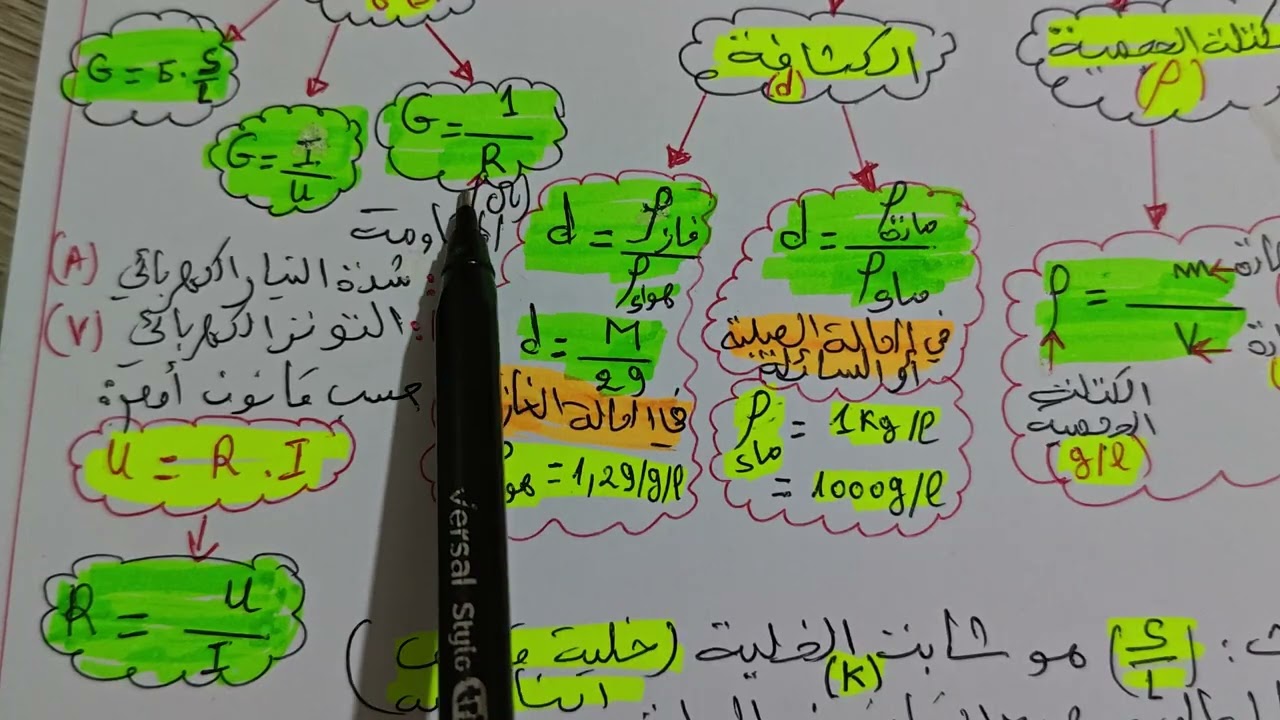 G = σ · S/L
G = I/U
G = 1/R
(Ω)
(A) شدة التيار الكهربائي :
(V) التوتر الكهربائي :
حسب قانون أوم
U = R . I
R = U/I
الكثافة
(d)
d = ρ غاز / ρ هواء
d = M/29
في الحالة الغاز
= 1,29/g/l
d = ρ مادة / ρ ماء
في الحالة الصلبة
أو السائلة
ρ ماء = 1Kg/l
= 1000g/l
كتلة الحجمية
(ρ)
ρ = m/V
الكتلة
الحجمية
(g/l)
(S/L) هو ثابت الخلية (خلية
(K)
Versal Stylo